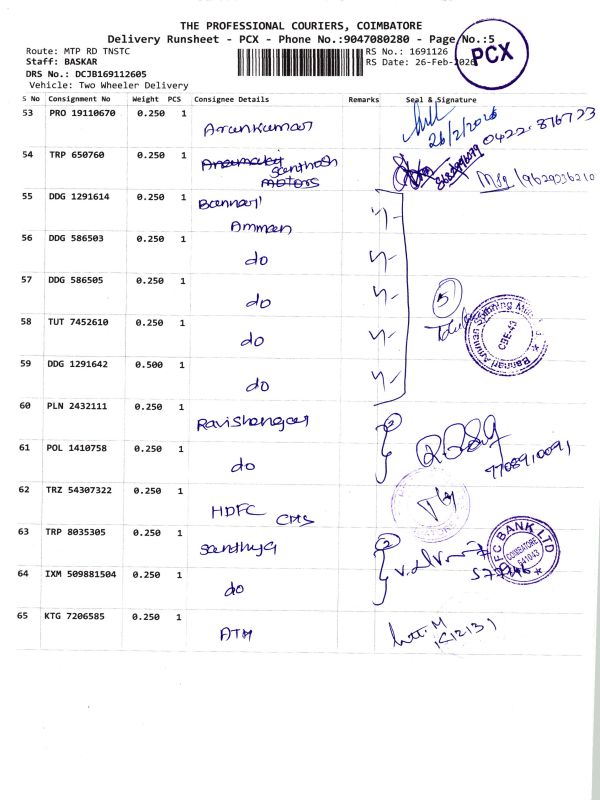 THE PROFESSIONAL COURIERS, COIMBATORE
Delivery Runsheet - PCX - Phone No.:9047080280 - Page No.:5
Route: MTP RD TNSTC
RS No.: 1691126
Staff: BASKAR
RS Date: 26-Feb-2026
PCX
DRS No.: DCJB169112605
Vehicle: Two Wheeler Delivery
S No Consignment No Weight PCS Consignee Details Remarks Seal & Signature
53 PRO 19110670 0.250 1 Arunkumar
26/2/2026
54 TRP 650760 0.250 1 Santhosh
MOTORS
55 DDG 1291614 0.250 1 Bannari
Amman
56 DDG 586503 0.250 1 do
57 DDG 586505 0.250 1 do
5
58 TUT 7452610 0.250 1 do
CBE-43
59 DDG 1291642 0.500 1 do
60 PLN 2432111 0.250 1 Ravishengar
2
61 POL 1410758 0.250 1 do
7708910091
62 TRZ 54307322 0.250 1 HDFC CMS
63 TRP 8035305 0.250 1 Santhiya
2
HDFC BANK LTD
COIMBATORE
641043
64 IXM 509881504 0.250 1 do
65 KTG 7206585 0.250 1 ATM